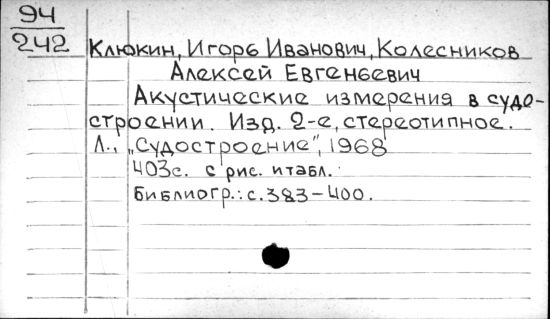 94
242
Клюкин, Игорь Иванович, Колесников
Алексей Евгеньевич
Акустические измерения в судо-
строении. Изд. 2-е, стереотипное.
Л., „Судостроение", 1968
403с. с рис. и табл.
Библиогр.: с. 383-400.